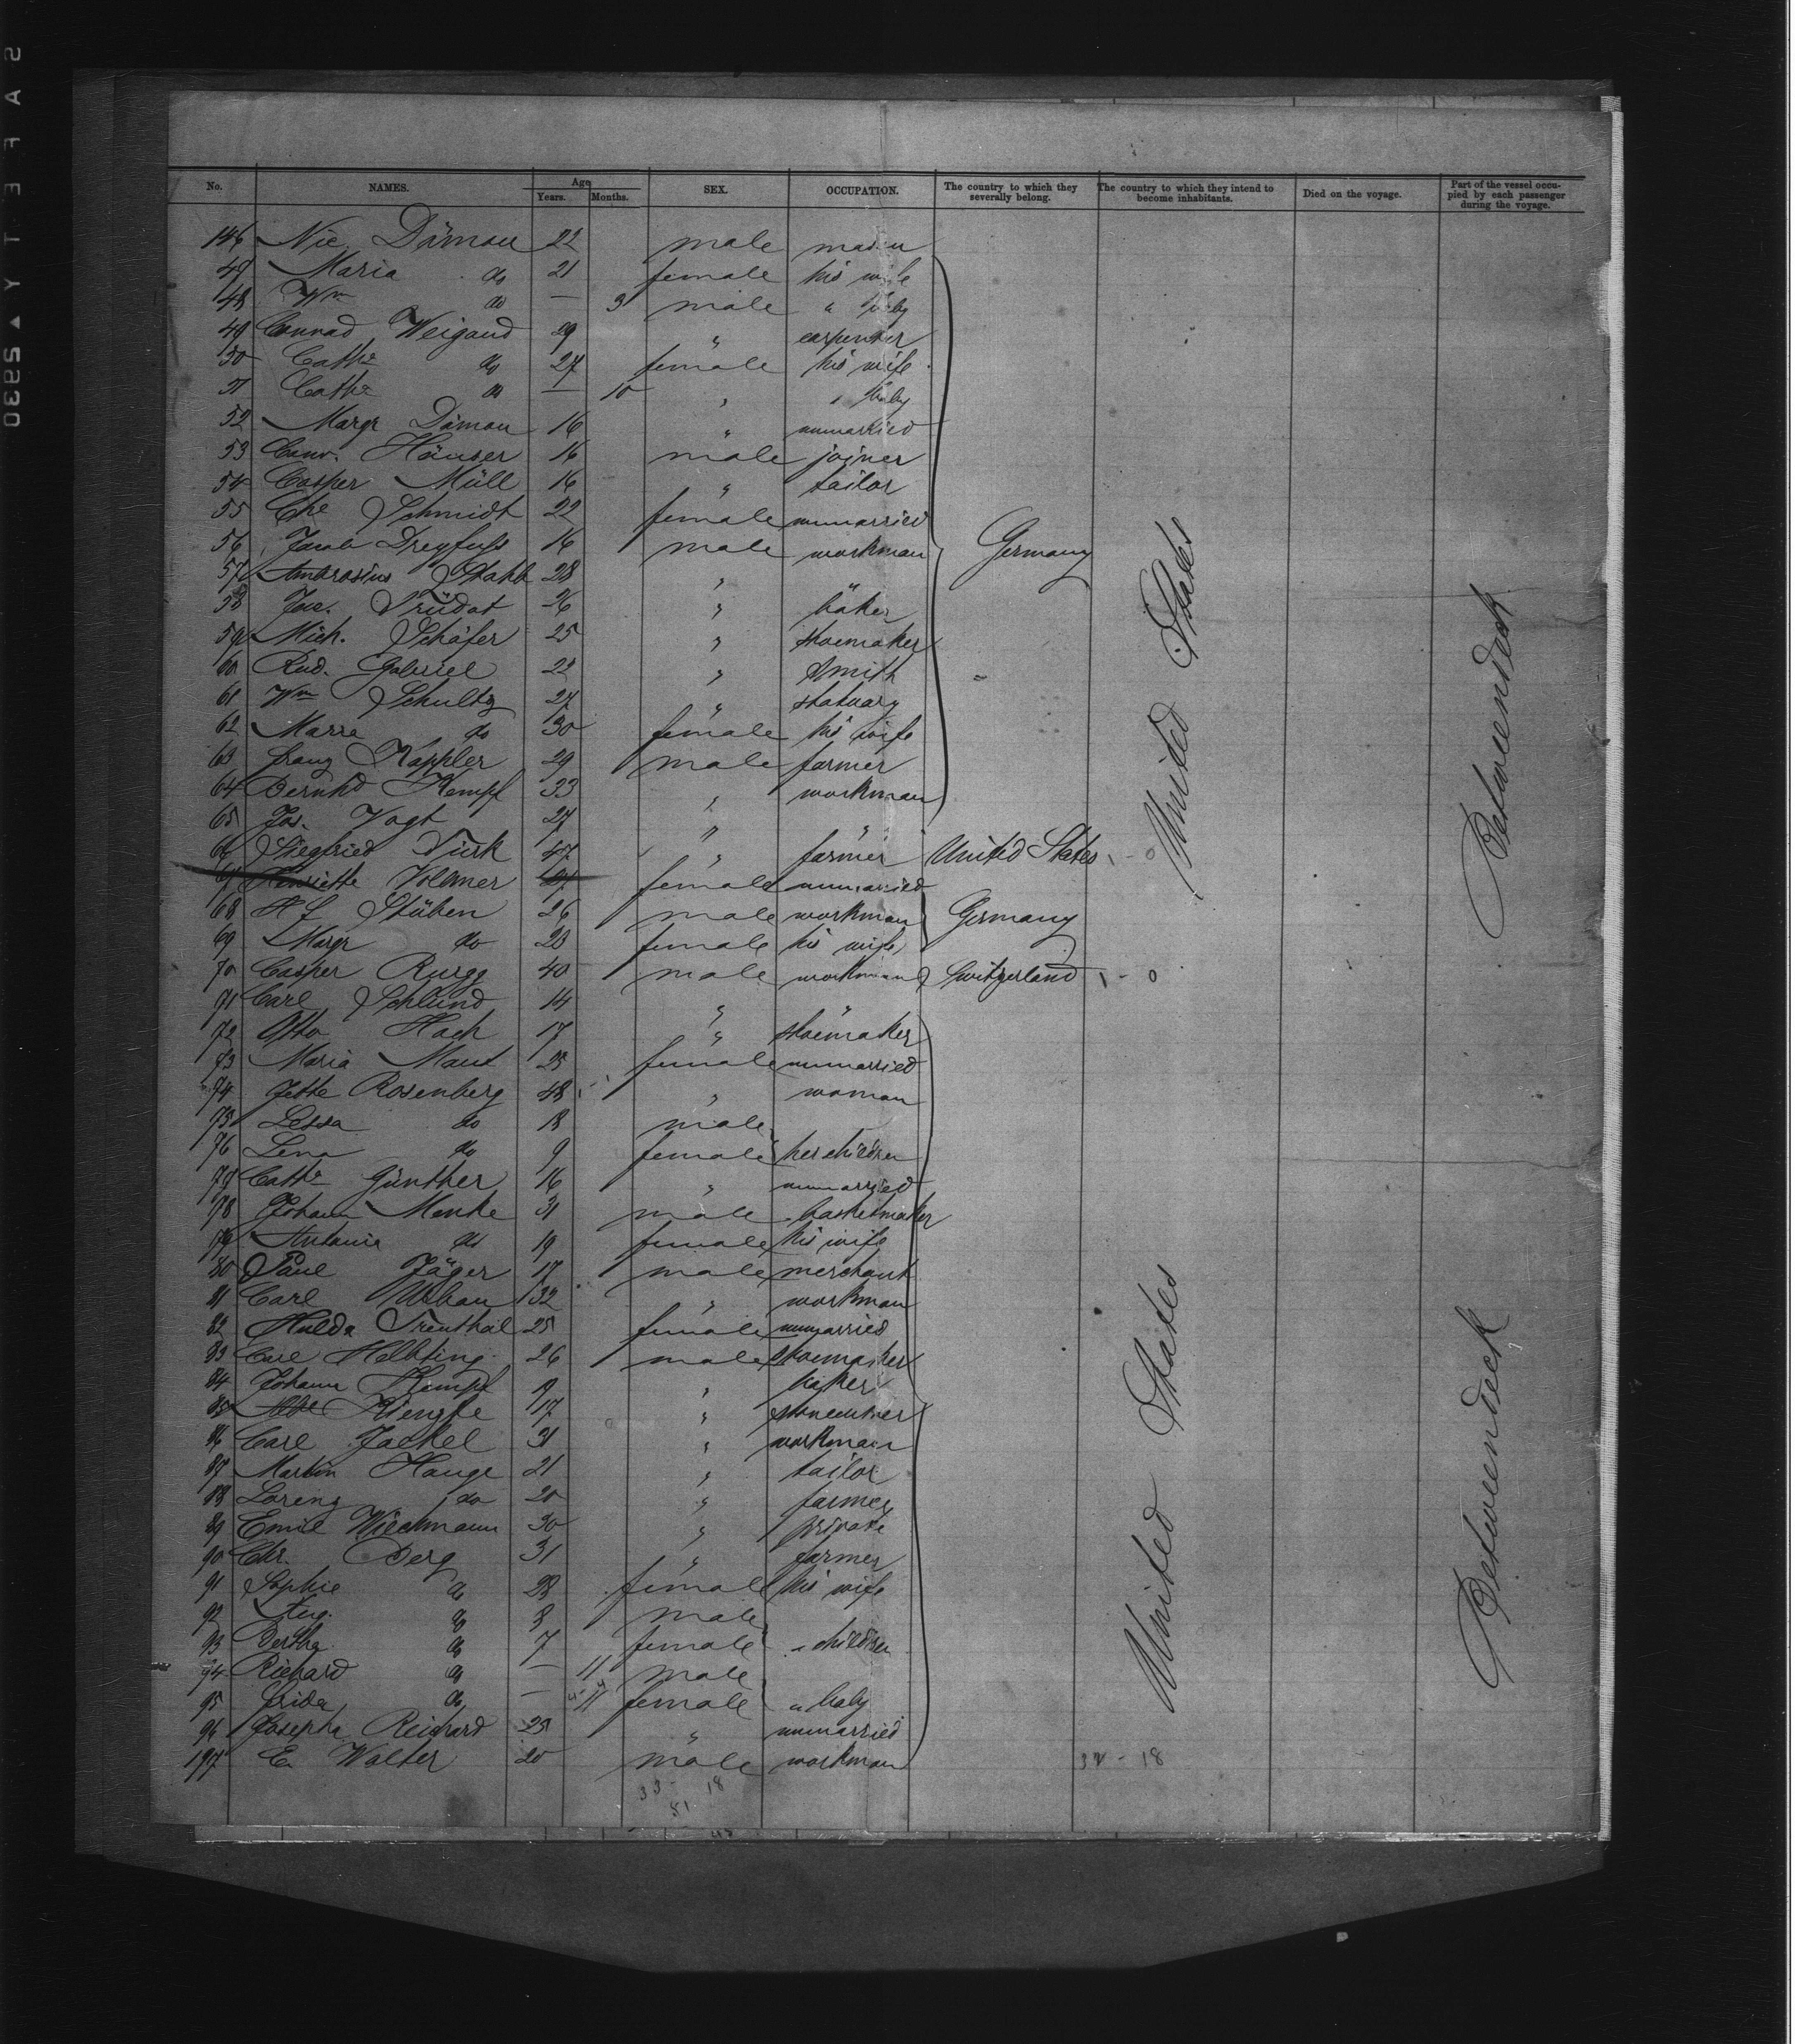 SAFETY▲S9E0
No. NAMES. Age Years. Months. SEX. OCCUPATION. The country to which they severally belong. The country to which they intend to become inhabitants. Died on the voyage. Part of the vessel occupied by each passenger during the voyage.
146 Nic. Dömou 22 male mason
47 Maria do 21 female his wife
48 Wm do — 3 male " baby
49 Conrad Weigand 29 " carpenter
50 Cathe do 27 female his wife
51 Cathe do — 10 " " baby
52 Margr Dömou 16 " unmarried
53 Conr. Häuser 16 male joiner
54 Casper Müll 16 " tailor
55 Che Schmidt 22 female unmarried
56 Jacob Dreyfuss 16 male workman Germany
57 Ambrosius Stahl 28 "
58 Jac. Trüdat 26 " bäker
59 Mich. Schäfer 25 " shoemaker
60 Rud. Gabriel 22 " Smith
61 Wm Schultz 27 " statuary
62 Marre do 30 female his wife
63 Franz Kappler 29 male farmer
64 Bernhd Kempf 33 " workman
65 Jos. Vogt 27 " "
66 Siegfried Türk 47 " farmer United States
67 Henriette Vollmer female unmarried
68 H F Stüben 26 male workman Germany
69 Margr do 23 female his wife
70 Casper Rurgg 40 male workman Switzerland
71 Carl Schlund 14 " "
72 Otto Hach 17 " shoemaker
73 Maria Maut 25 female unmarried
74 Jette Rosenberg 48 " woman
75 Lessa do 18 male
76 Lena do 9 female her children
77 Cathe Günther 16 " unmarried
78 Johann Menke 31 male basketmaker
79 Antonia do 19 female his wife
80 Paul Jäger 17 male merchant
81 Carl Urban 32 " workman
82 Hulda Treuthal 25 female unmarried
83 Carl Helbling 26 male shoemaker
84 Johann Kempf 19 " baker
85 Kienzle 17 " stonecutter
86 Carl Jackel 31 " workman
87 Martin Hauge 21 " tailor
88 Lorenz do 20 " farmer
89 Emil Wiechmann 30 " private
90 Chr. Berg 31 " farmer
91 Sophie do 28 female his wife
92 Aug. do 8 male
93 Bertha do 7 female " children
94 Richard do — 11 male
95 Frida do — 11 female " baby
96 Josepha Reichard 25 " unmarried
197 E. Walter 20 male workman
United States
Betweendeck
United States
Betweendeck
33 - 18
51